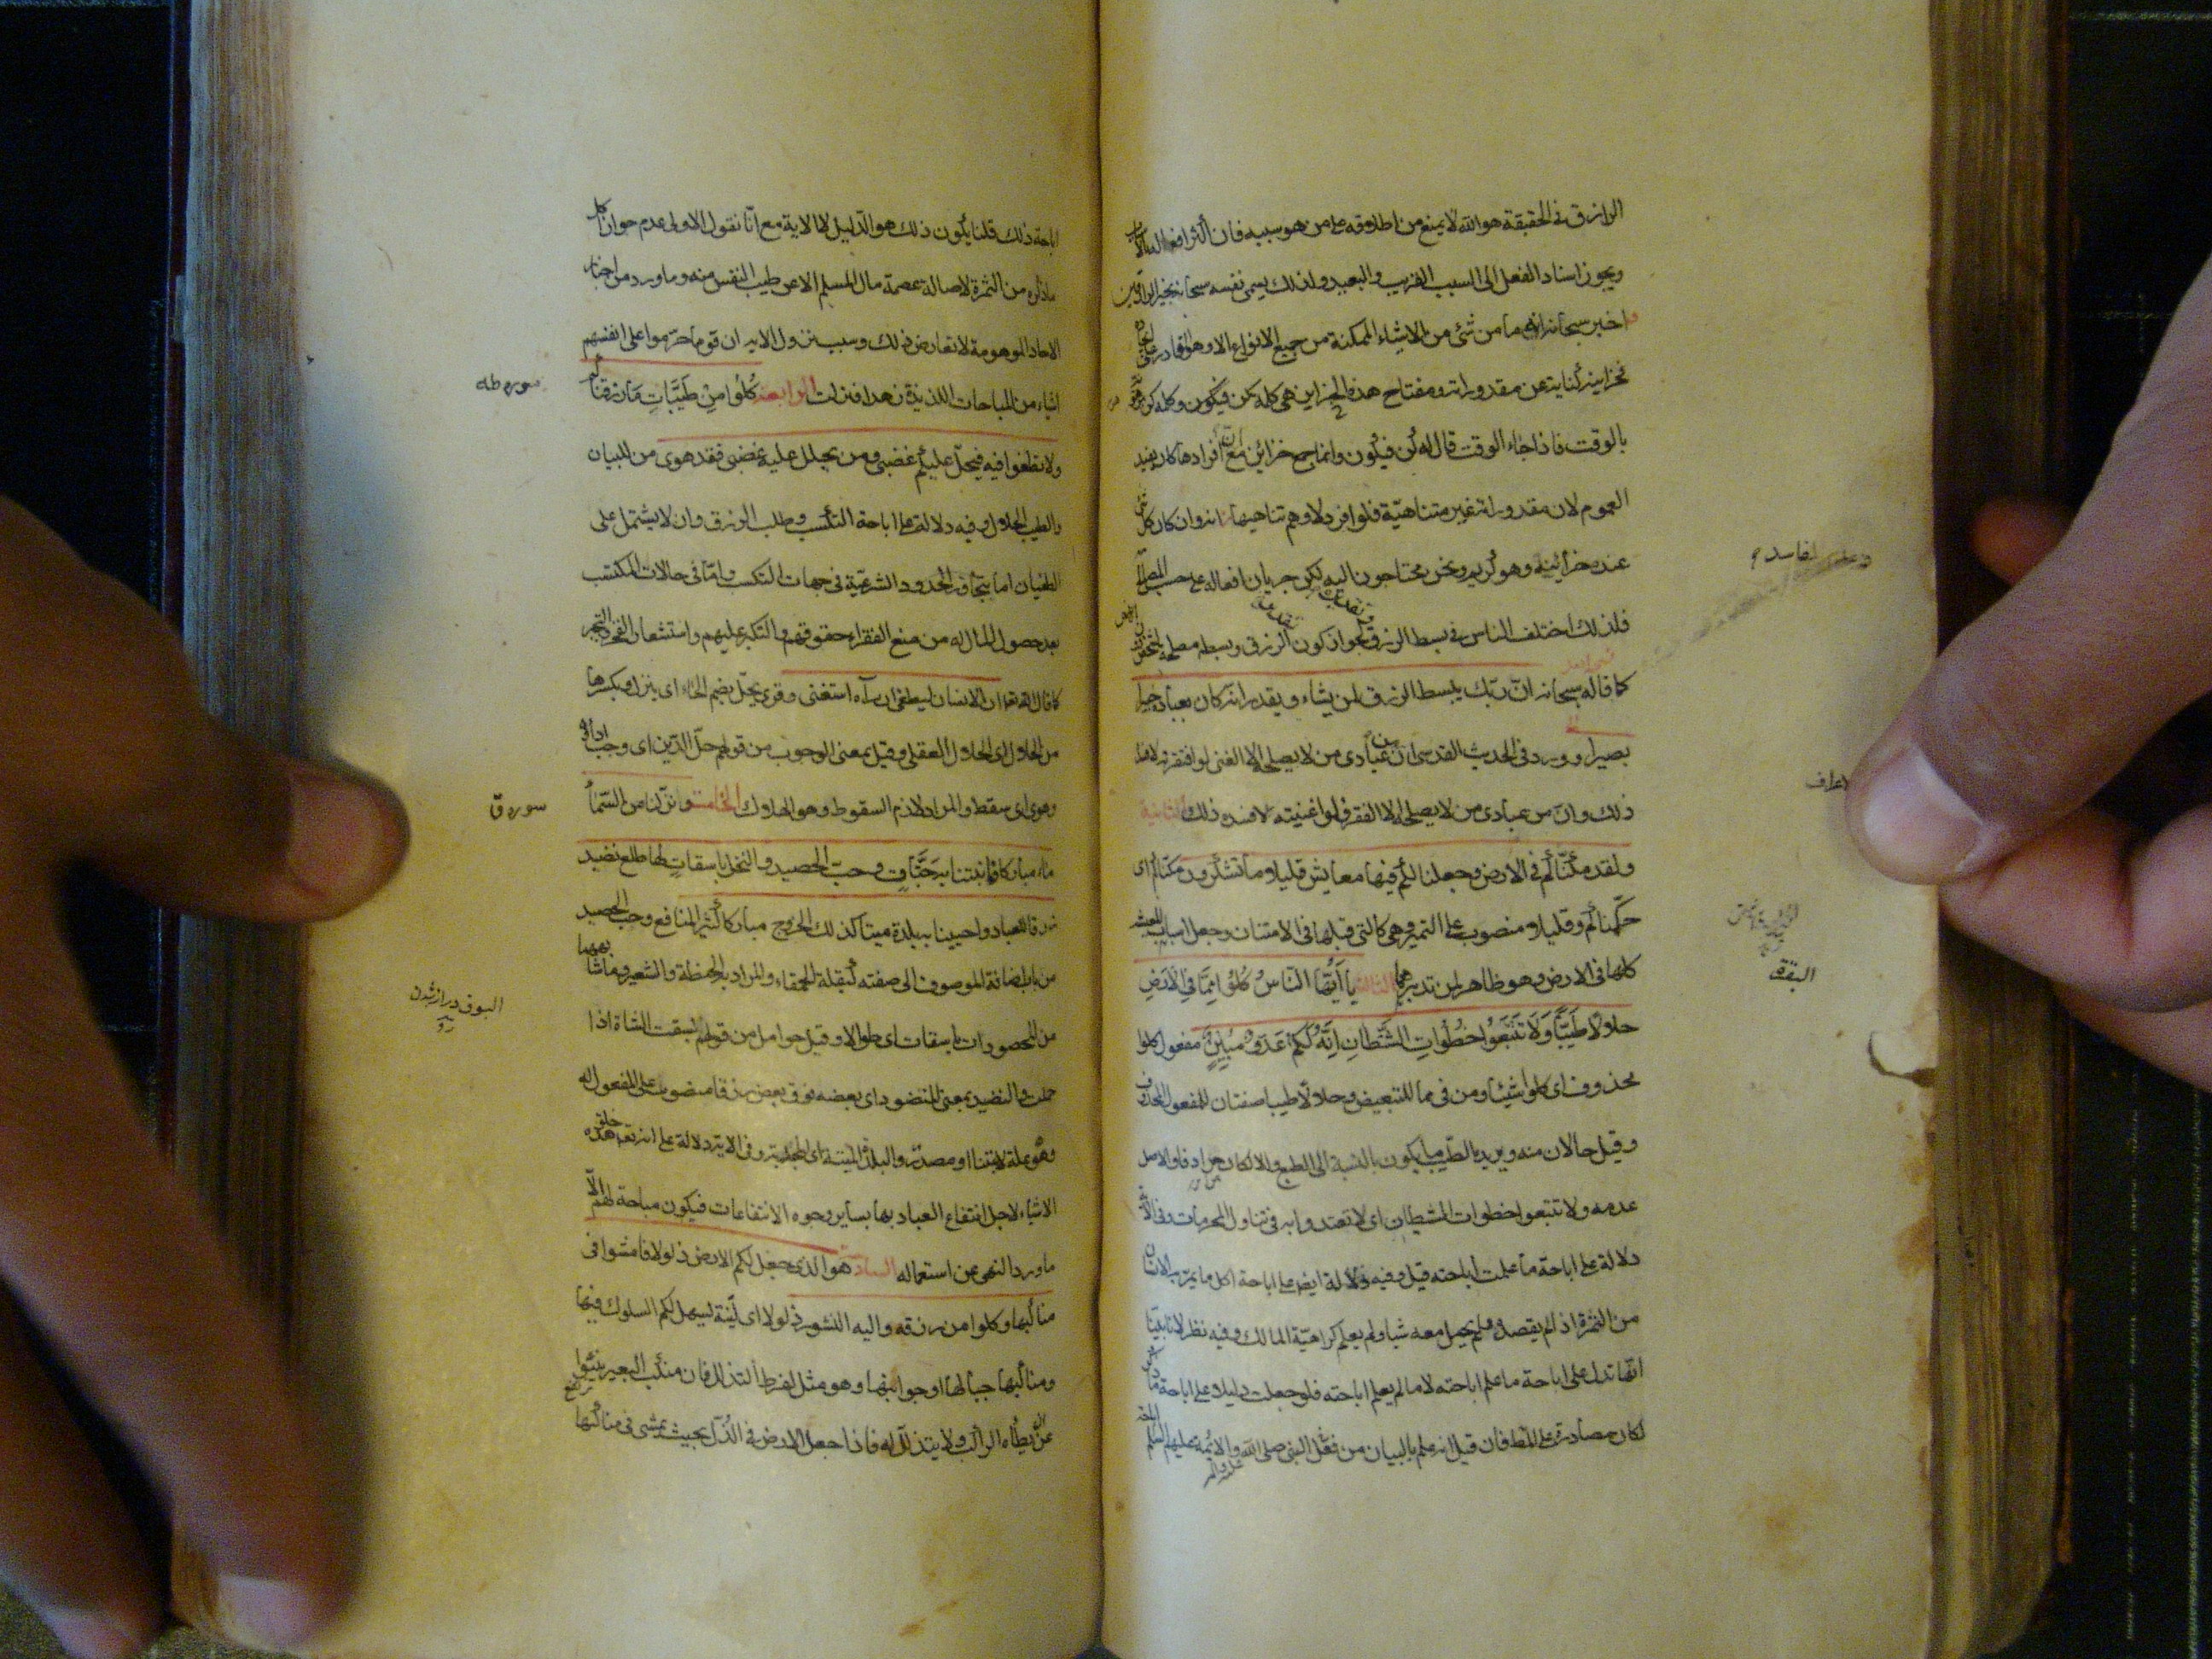 الرازق في الحقيقة هو الله لا يمنع من اطلاقه على من هو سببه فان اكثر افعال
ويجوز اسناد الفعل الى السبب القريب والبعيد ولذلك يسمى نفسه سبحانه بخير الرازقين
اخبر سبحانه انه ما من شئ من الاشياء الممكنة من جميع الانواع الا وهو قادر على
فخزاينه كناية عن مقدوراته ومفتاح هذه الخزاين هي كلمة كن فيكون وكلمة كن
بالوقت فاذا جاء الوقت قال له كن فيكون وانما جمع خزائن مع ان افرادها كان يفيد
العموم لان مقدوراته غير متناهية فلو افرد لاوهم تناهيها انه وان كان كل شئ
عنده خزائنه وهو كريم ونحن محتاجون اليه لكن جريان افعاله على حسب المصالح
فلذلك اختلف الناس في بسط الرزق لجواز كون الرزق وبسطه مصلحة لشخص
كما قاله سبحانه ان ربك يبسط الرزق لمن يشاء ويقدر انه كان بعباده خبيرا
بصيرا وورد في الحديث القدسي ان من عبادي من لا يصلحه الا الغنى لو افقرته لافسده
ذلك وان من عبادي من لا يصلحه الا الفقر فلو اغنيته لافسده ذلك الثانية
ولقد مكناكم في الارض وجعلنا لكم فيها معايش قليلا ما تشكرون مكناكم اى
حكمناكم وقليلا منصوب على التميز وهي كالتي قبلها في الامتنان وجعل اسباب المعيشة
كلها في الارض وهو ظاهر لمن تدبرها الثالثة يا ايها الناس كلوا مما في الارض
حلالا طيبا ولا تتبعوا خطوات الشيطان انه لكم عدو مبين مفعول كلوا
محذوف اى كلوا شيئا ومن في مما للتبعيض وحلالا طيبا صفتان للمفعول المحذوف
وقيل حالان منه ويريد بالطيب ما يكون بالنسبة الى الطبع والا لكان مرادفا والاصل
عدمه ولا تتبعوا خطوات الشيطان اى لا تقتدوا به في تناول المحرمات وفي الاية
دلالة على اباحة ما علمت اباحته قيل وفيه دلالة ايض على اباحة اكل ما يمر به الانسان
من الثمرة اذا لم يقصد ولم يحمل معه شيا ولم يعلم كراهية المالك وفيه نظر لانا بينا
انها تدل على اباحة ما علم اباحته لا ما لم يعلم اباحته فلو جعلت دليلا على اباحة ما
لكان مصادرة على المط فان قيل انه علم بالبيان من فعل النبي صلى الله والائمة عليهم السلم
عليه وآله
الاعراف
البقرة
اباحة ذلك قلنا يكون ذلك هو الدليل لا الاية مع انا نقول الاولى عدم جواز اكل
ما ذكره من الثمرة لاصالة عصمة مال المسلم الا عن طيب النفس منه وما ورد من اخبار
الاحاد الموهومة لا تعارض ذلك وسبب نزول الاية ان قوما حرموا على انفسهم
اشياء من المباحات اللذيذة زهدا فنزلت الرابعة كلوا من طيبات ما رزقناكم
ولا تطغوا فيه فيحل عليكم غضبي ومن يحلل عليه غضبي فقد هوى من للبيان
والطيب الحلال وفيه دلالة على اباحة التكسب وطلب الرزق وان لا يشتمل على
الطغيان اما بتجاوز الحدود الشرعية في جهات التكسب واما في حالات المكتسب
بعد حصول المال له من منع الفقراء حقوقهم والتكبر عليهم واستشعار الفخر والتجبر
كما قال الله تعا ان الانسان ليطغى ان رآه استغنى وقرئ يحل بضم الحاء اى ينزل وبكسرها
من الحلال اى الحلال العقلي وقيل بمعنى الوجوب من قولهم حل الدين اى وجب اداؤه
وهوى اى سقط والمراد لازم السقوط وهو الهلاك الخامسة ونزلنا من السماء
ماء مباركا فانبتنا به جنات وحب الحصيد والنخل باسقات لها طلع نضيد
رزقا للعباد واحيينا به بلدة ميتا كذلك الخروج مباركا كثير المنافع وحب الحصيد
من باب اضافة الموصوف الى صفته كبقلة الحمقاء والمراد به الحنطة والشعير وما شابههما
من المحصودات باسقات اى طوالا وقيل حوامل من قولهم بسقت الشاة اذا
حملت والنضيد بمعنى المنضود اى بعضه فوق بعض رزقا منصوب على المفعول له
وهو علة لانبتنا او مصدر والبلدة الميتة اى المجدبة وفي الاية دلالة على انه تعا خلق هذه
الاشياء لاجل انتفاع العباد بها بساير وجوه الانتفاعات فيكون مباحة لهم الا
ما ورد النهى عن استعماله السادسة هو الذي جعل لكم الارض ذلولا فامشوا في
مناكبها وكلوا من رزقه واليه النشور ذلولا اى لينة ليسهل لكم السلوك فيها
ومناكبها جبالها او جوانبها وهو مثل لفرط التذلل فان منكب البعير ينبوا
عن ان يطأه الراكب ولا يتذلل له فاذا جعل الارض في الذل بحيث يمشى في مناكبها
سوره طه
سوره ق